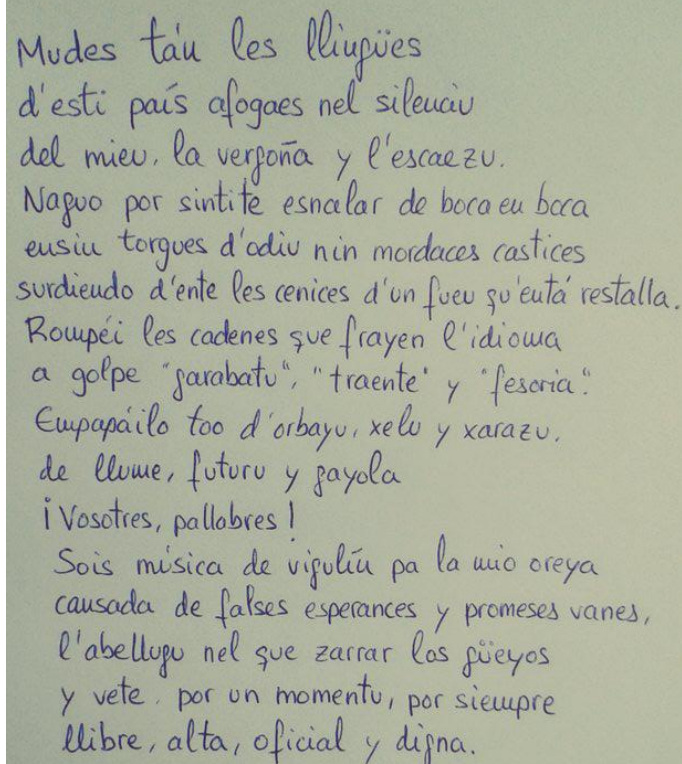 Mudes tán les llingües
d'esti país afogaes nel silenciu
del mieu, la vergoña y l'escaezu.
Naguo por sintite esnalar de boca en boca
ensin torgues d'odiu nin mordaces castices
surdiendo d'ente les cenices d'un fueu qu'entá restalla.
Rompéi les cadenes que frayen l'idioma
a golpe "garabatu", "traente" y "fesoria".
Empapáilo too d'orbayu, xelu y xarazu,
de llume, futuru y gayola
¡Vosotres, pallabres!
Sois música de vigulín pa la mio oreya
causada de falses esperances y promeses vanes,
l'abellugu nel que zarrar los güeyos
y vete, por un momentu, por siempre
llibre, alta, oficial y digna.